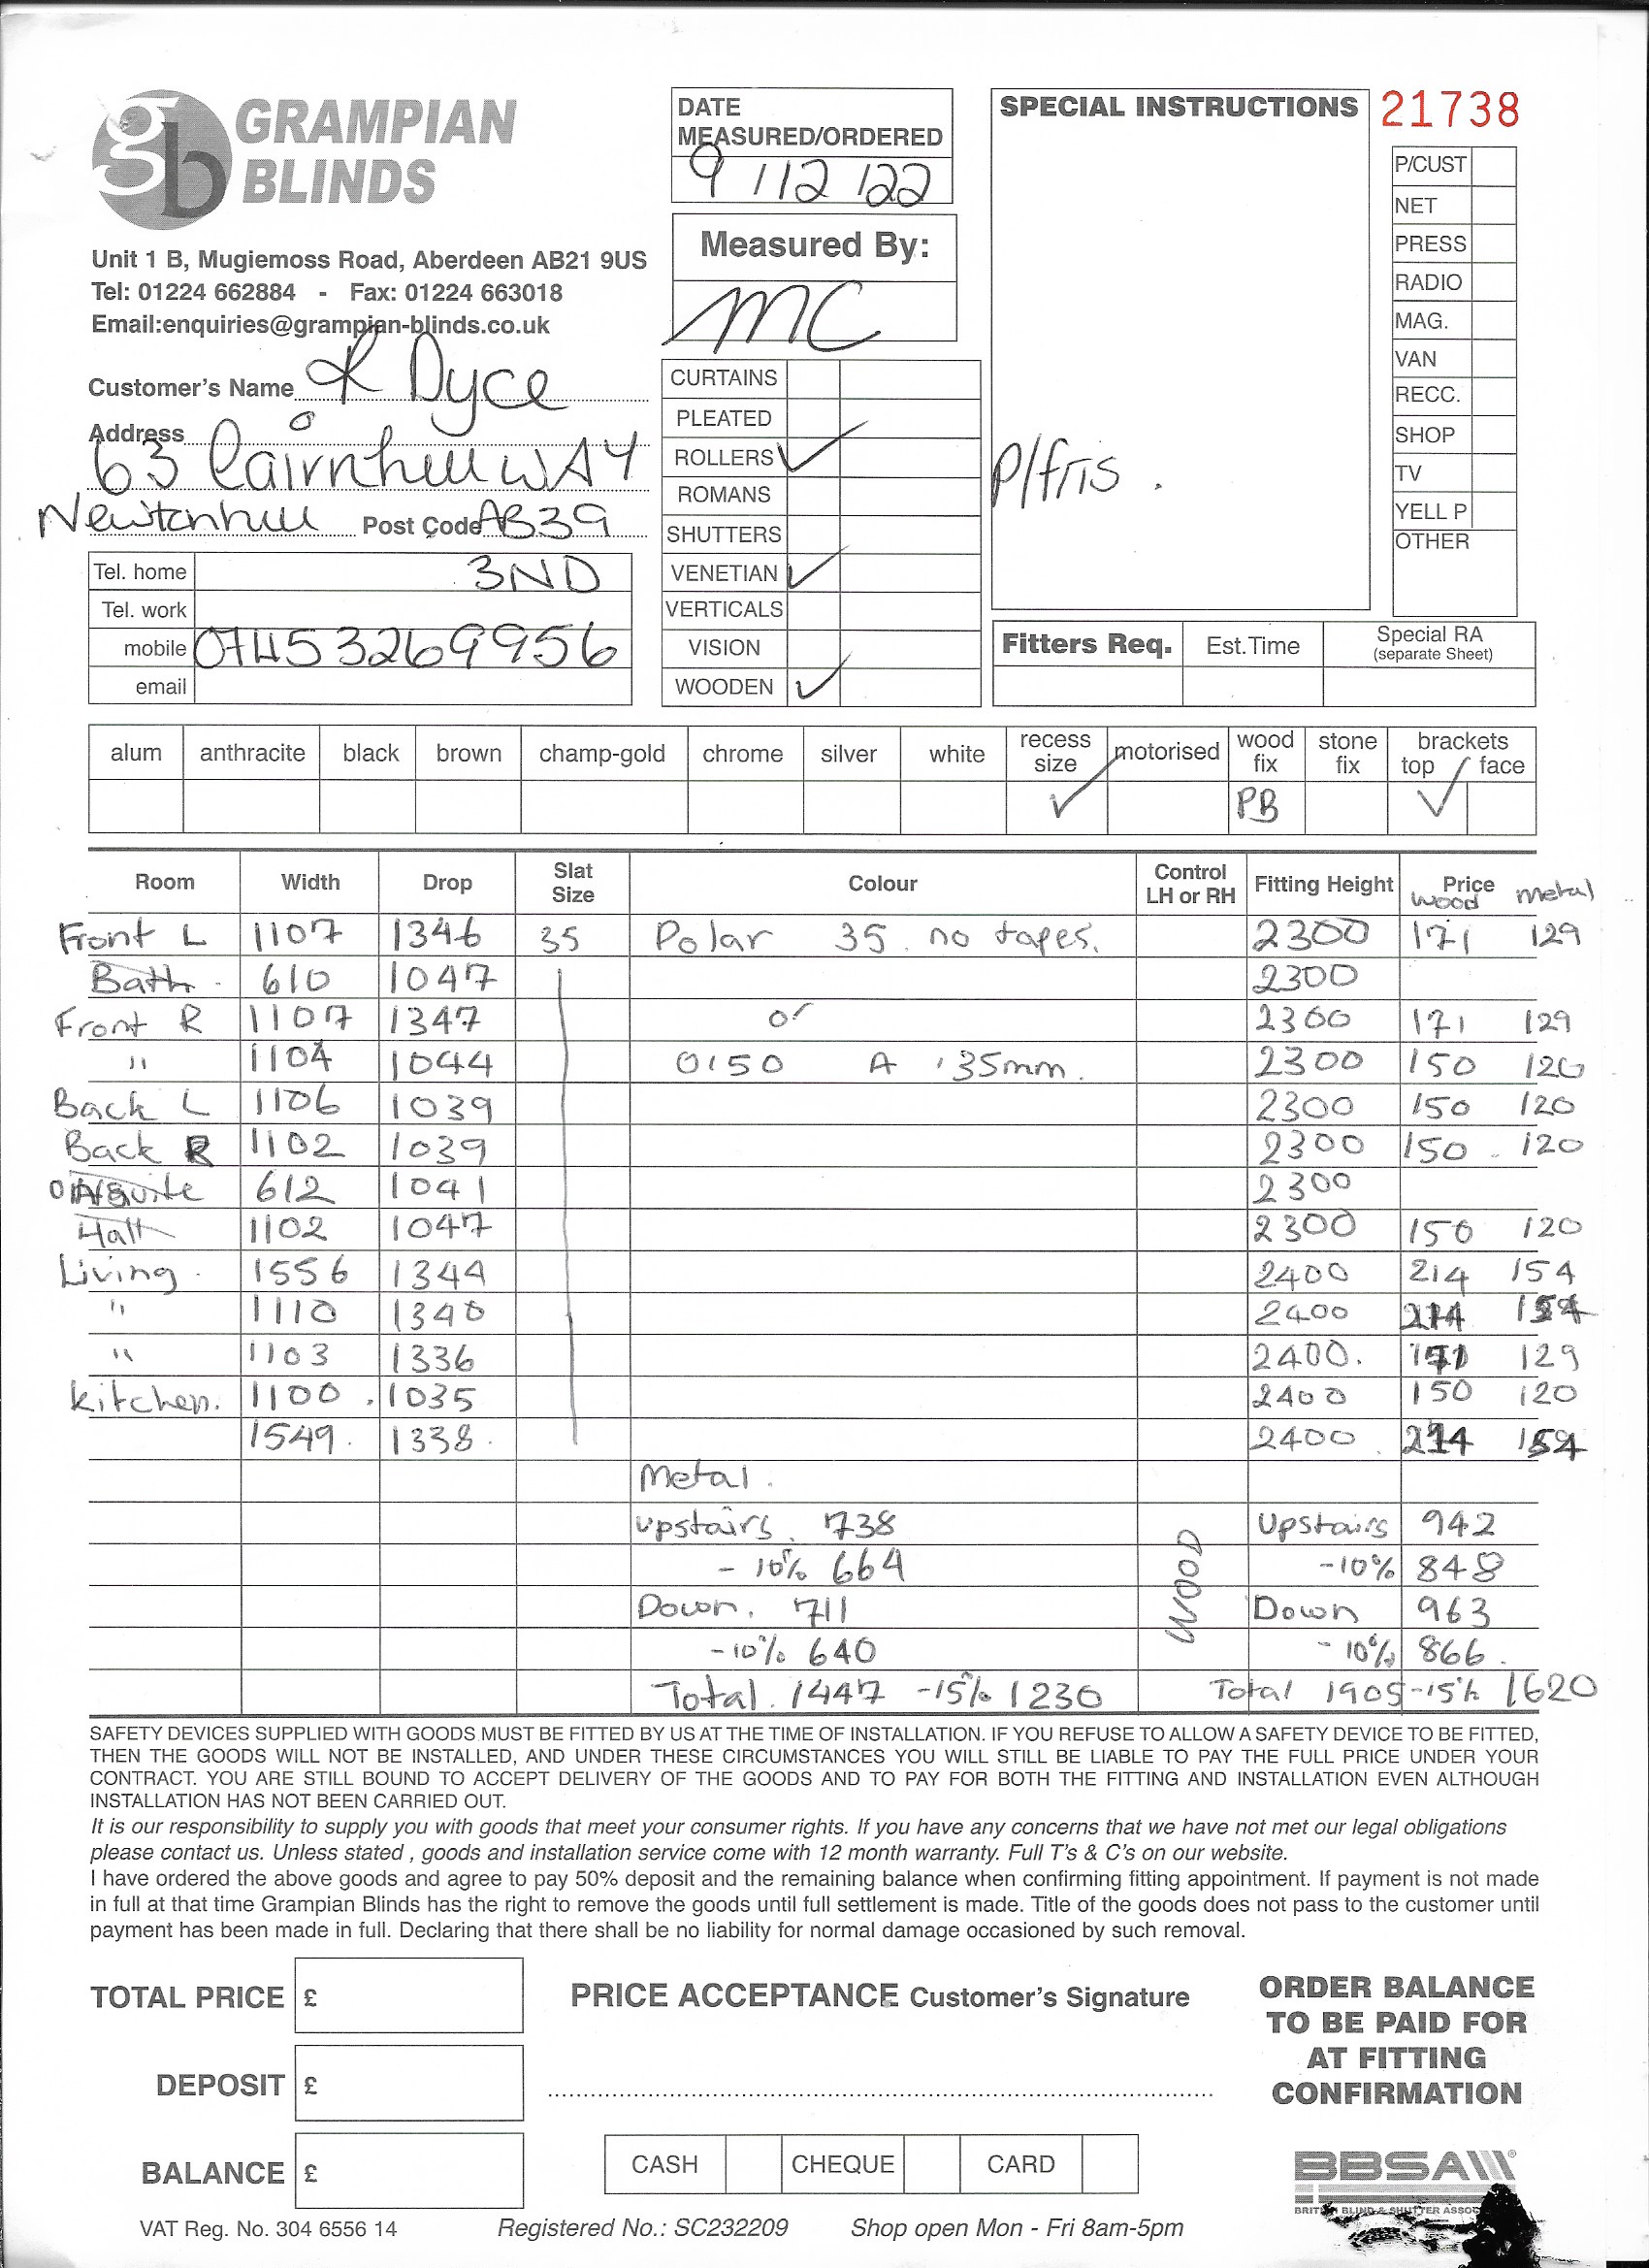 GRAMPIAN BLINDS
Unit 1 B, Mugiemoss Road, Aberdeen AB21 9US
Tel: 01224 662884 - Fax: 01224 663018
Email:enquiries@grampian-blinds.co.uk
Customer's Name R Dyce
Address
63 Cairnhill WAY
Newtonhill Post Code AB39
Tel. home 3ND
Tel. work
mobile 07453269956
email
DATE
MEASURED/ORDERED
9/12/22
Measured By:
MC
CURTAINS
PLEATED
ROLLERS ✓
ROMANS
SHUTTERS
VENETIAN ✓
VERTICALS
VISION
WOODEN ✓
SPECIAL INSTRUCTIONS
21738
P/CUST
NET
PRESS
RADIO
MAG.
VAN
RECC.
SHOP
TV
YELL P
OTHER
Fitters Req. Est.Time Special RA
(separate Sheet)
alum anthracite black brown champ-gold chrome silver white recess size motorised wood fix stone fix brackets top face
✓ PB ✓
Room Width Drop Slat Size Colour Control LH or RH Fitting Height Price wood metal
Front L 1107 1346 35 Polar 35 no tapes. 2300 171 129
Bath 610 1047 2300
Front R 1107 1347 or 2300 171 129
" 1104 1044 0150 A 35mm. 2300 150 120
Back L 1106 1039 2300 150 120
Back R 1102 1039 2300 150 120
612 1041 2300
Hall 1102 1047 2300 150 120
Living 1556 1344 2400 214 154
" 1110 1340 2400
" 1103 1336 2400. 171 129
Kitchen. 1100 1035 2400 150 120
1549 1338 2400
Metal.
Upstairs 738 Upstairs 942
- 10% 664 WOOD -10% 848
Down. 711 Down 963
-10% 640 -10% 866
Total 1447 -15% 1230 Total 1905 -15% 1620
SAFETY DEVICES SUPPLIED WITH GOODS MUST BE FITTED BY US AT THE TIME OF INSTALLATION. IF YOU REFUSE TO ALLOW A SAFETY DEVICE TO BE FITTED,
THEN THE GOODS WILL NOT BE INSTALLED, AND UNDER THESE CIRCUMSTANCES YOU WILL STILL BE LIABLE TO PAY THE FULL PRICE UNDER YOUR
CONTRACT. YOU ARE STILL BOUND TO ACCEPT DELIVERY OF THE GOODS AND TO PAY FOR BOTH THE FITTING AND INSTALLATION EVEN ALTHOUGH
INSTALLATION HAS NOT BEEN CARRIED OUT.
It is our responsibility to supply you with goods that meet your consumer rights. If you have any concerns that we have not met our legal obligations
please contact us. Unless stated , goods and installation service come with 12 month warranty. Full T's & C's on our website.
I have ordered the above goods and agree to pay 50% deposit and the remaining balance when confirming fitting appointment. If payment is not made
in full at that time Grampian Blinds has the right to remove the goods until full settlement is made. Title of the goods does not pass to the customer until
payment has been made in full. Declaring that there shall be no liability for normal damage occasioned by such removal.
TOTAL PRICE £
DEPOSIT £
BALANCE £
PRICE ACCEPTANCE Customer's Signature
CASH CHEQUE CARD
ORDER BALANCE
TO BE PAID FOR
AT FITTING
CONFIRMATION
BBSA
VAT Reg. No. 304 6556 14 Registered No.: SC232209 Shop open Mon - Fri 8am-5pm